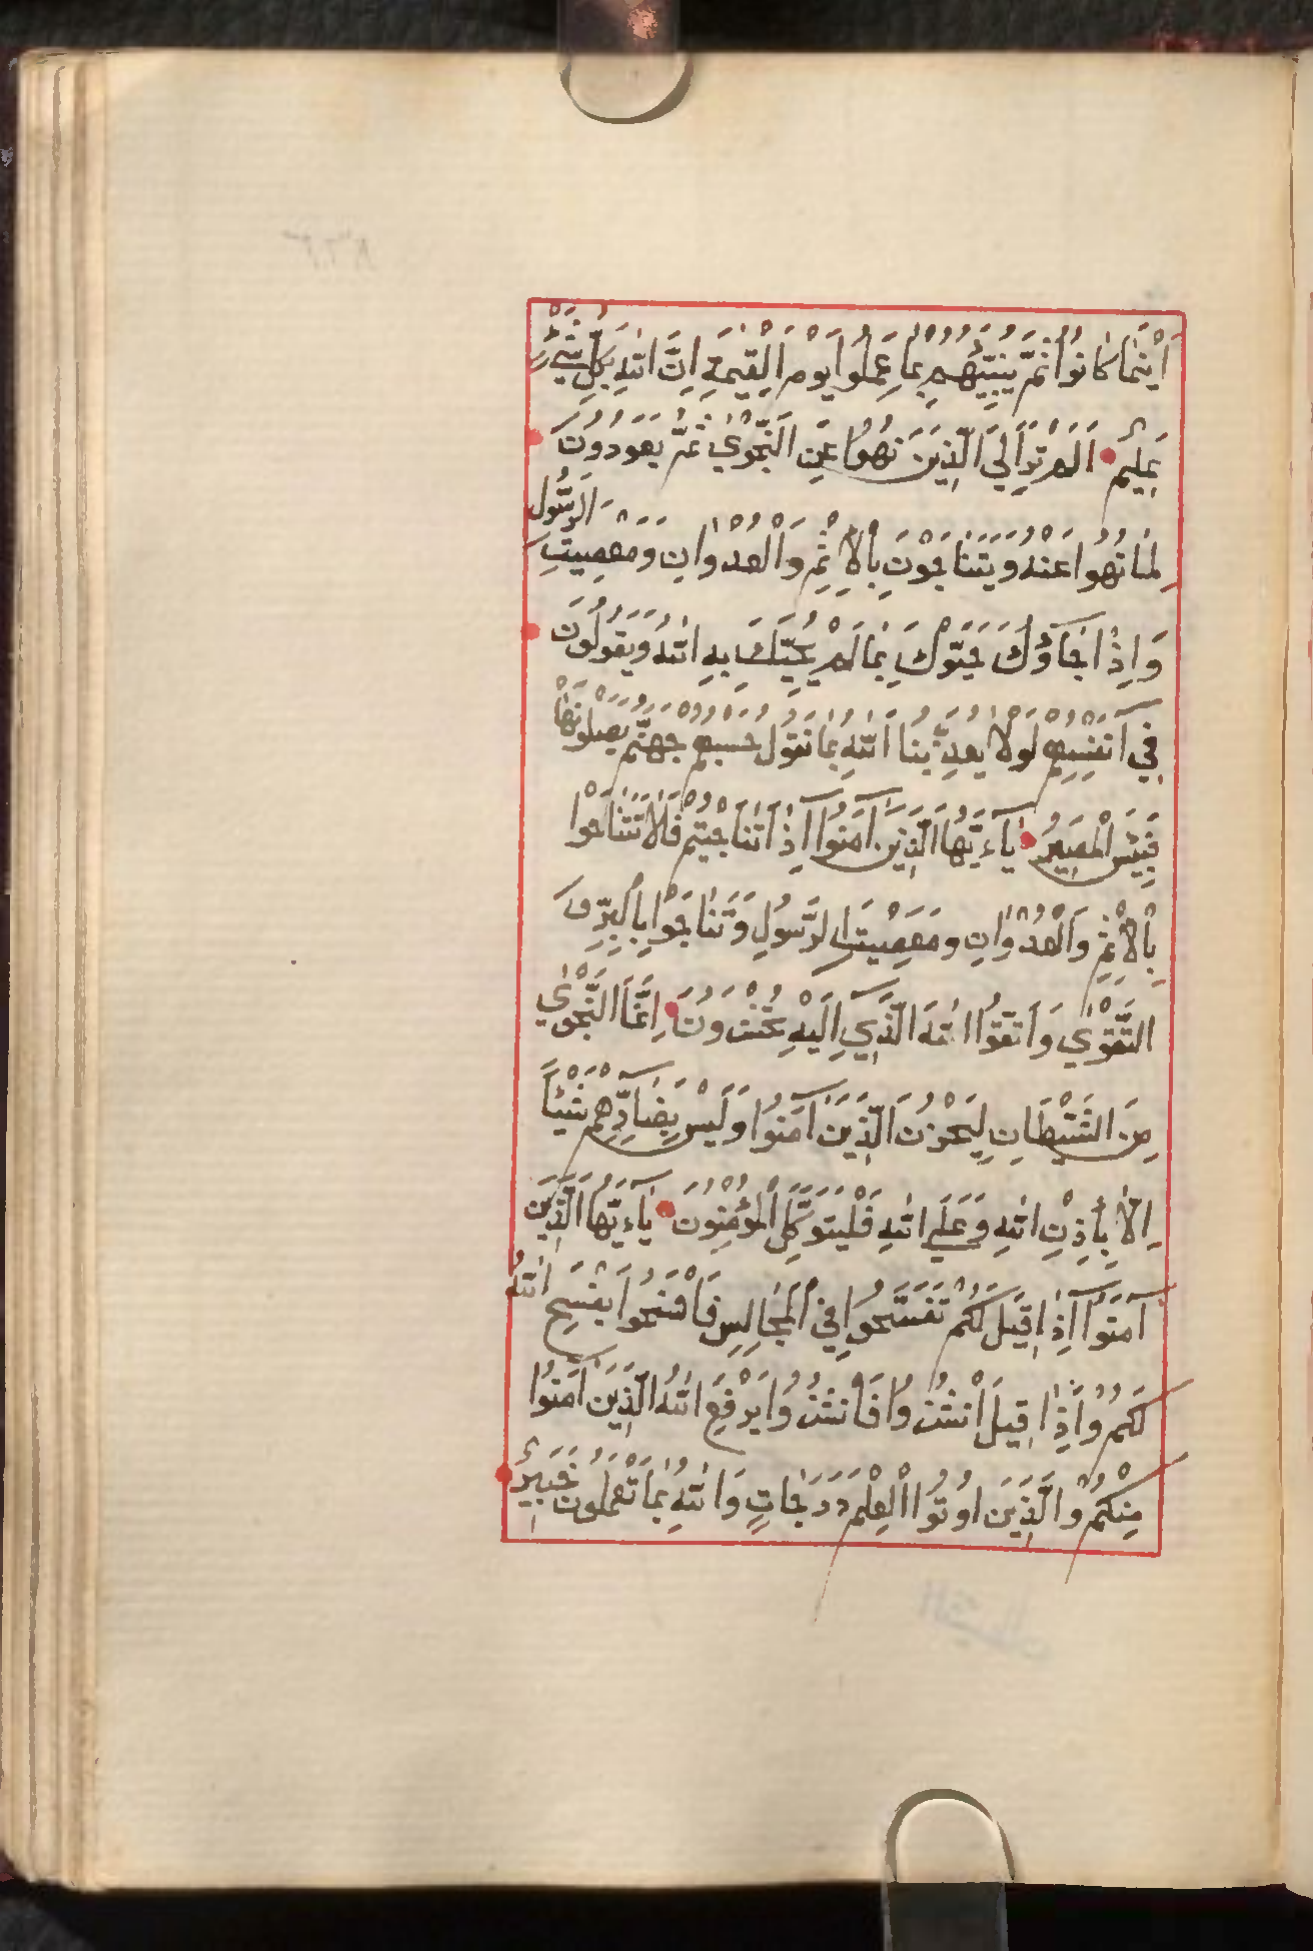 أَيْنَمَا كَانُوا ثُمَّ يُنَبِّئُهُمْ بِمَا عَمِلُوا يَوْمَ الْقِيٰمَةِ اِنَّ اللّٰهَ بِكُلِّ شَيْءٍ
عَلِيمٌ اَلَمْ تَرَ اِلَى الَّذِينَ نُهُوا عَنِ النَّجْوٰي ثُمَّ يَعُودُونَ
لِمَا نُهُوا عَنْهُ وَيَتَنَاجَوْنَ بِالْاِثْمِ وَالْعُدْوٰانِ وَمَعْصِيَتِ الرَّسُولِ
وَاِذَا جَآؤُكَ حَيَّوْكَ بِمَا لَمْ يُحَيِّكَ بِهِ اللّٰهُ وَيَقُولُونَ
فِي اَنْفُسِهِمْ لَوْلَا يُعَذِّبُنَا اللّٰهُ بِمَا نَقُولُ حَسْبُهُمْ جَهَنَّمُ يَصْلَوْنَهَا
فَبِئْسَ الْمَصِيرُ يَآءَيُّهَا الَّذِينَ اٰمَنُوا اِذَا تَنَاجَيْتُمْ فَلَا تَتَنَاجَوْا
بِالْاِثْمِ وَالْعُدْوٰانِ وَمَعْصِيَتِ الرَّسُولِ وَتَنَاجَوْا بِالْبِرِّ وَ
التَّقْوٰي وَاتَّقُوا اللّٰهَ الَّذِي اِلَيْهِ تُحْشَرُونَ اِنَّمَا النَّجْوٰي
مِنَ الشَّيْطَانِ لِيَحْزُنَ الَّذِينَ اٰمَنُوا وَلَيْسَ بِضَآرِّهِمْ شَيْئاً
اِلَّا بِأِذْنِ اللّٰهِ وَعَلَي اللّٰهِ فَلْيَتَوَكَّلِ الْمُؤْمِنُونَ يَآءَيُّهَا الَّذِينَ
اٰمَنُوا اِذَا قِيلَ لَكُمْ تَفَسَّحُوا فِي الْمَجَالِسِ فَافْسَحُوا يَفْسَحِ اللّٰهُ
لَكُمْ وَاِذَا قِيلَ انْشُزُوا فَانْشُزُوا يَرْفَعِ اللّٰهُ الَّذِينَ اٰمَنُوا
مِنْكُمْ وَالَّذِينَ اُوتُوا الْعِلْمَ دَرَجَاتٍ وَاللّٰهُ بِمَا تَعْمَلُونَ خَبِيرٌ